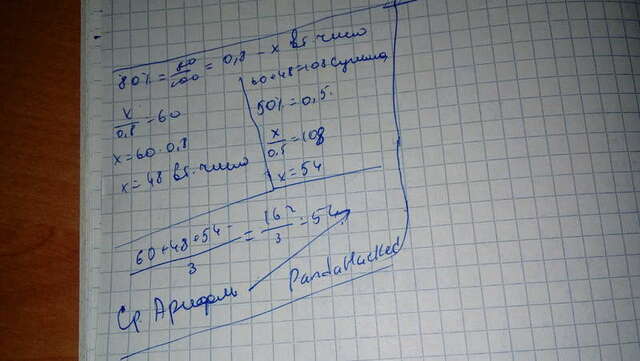 80% = 80/100 = 0,8 - x вт. число
x/0,8 = 60
x = 60 · 0,8
x = 48 вт. число
60+48=108 сумма
50% = 0,5.
x/0,5 = 108
x = 54
60+48+54/3 = 162/3 = 54
Ср Арифм
PandaHacked